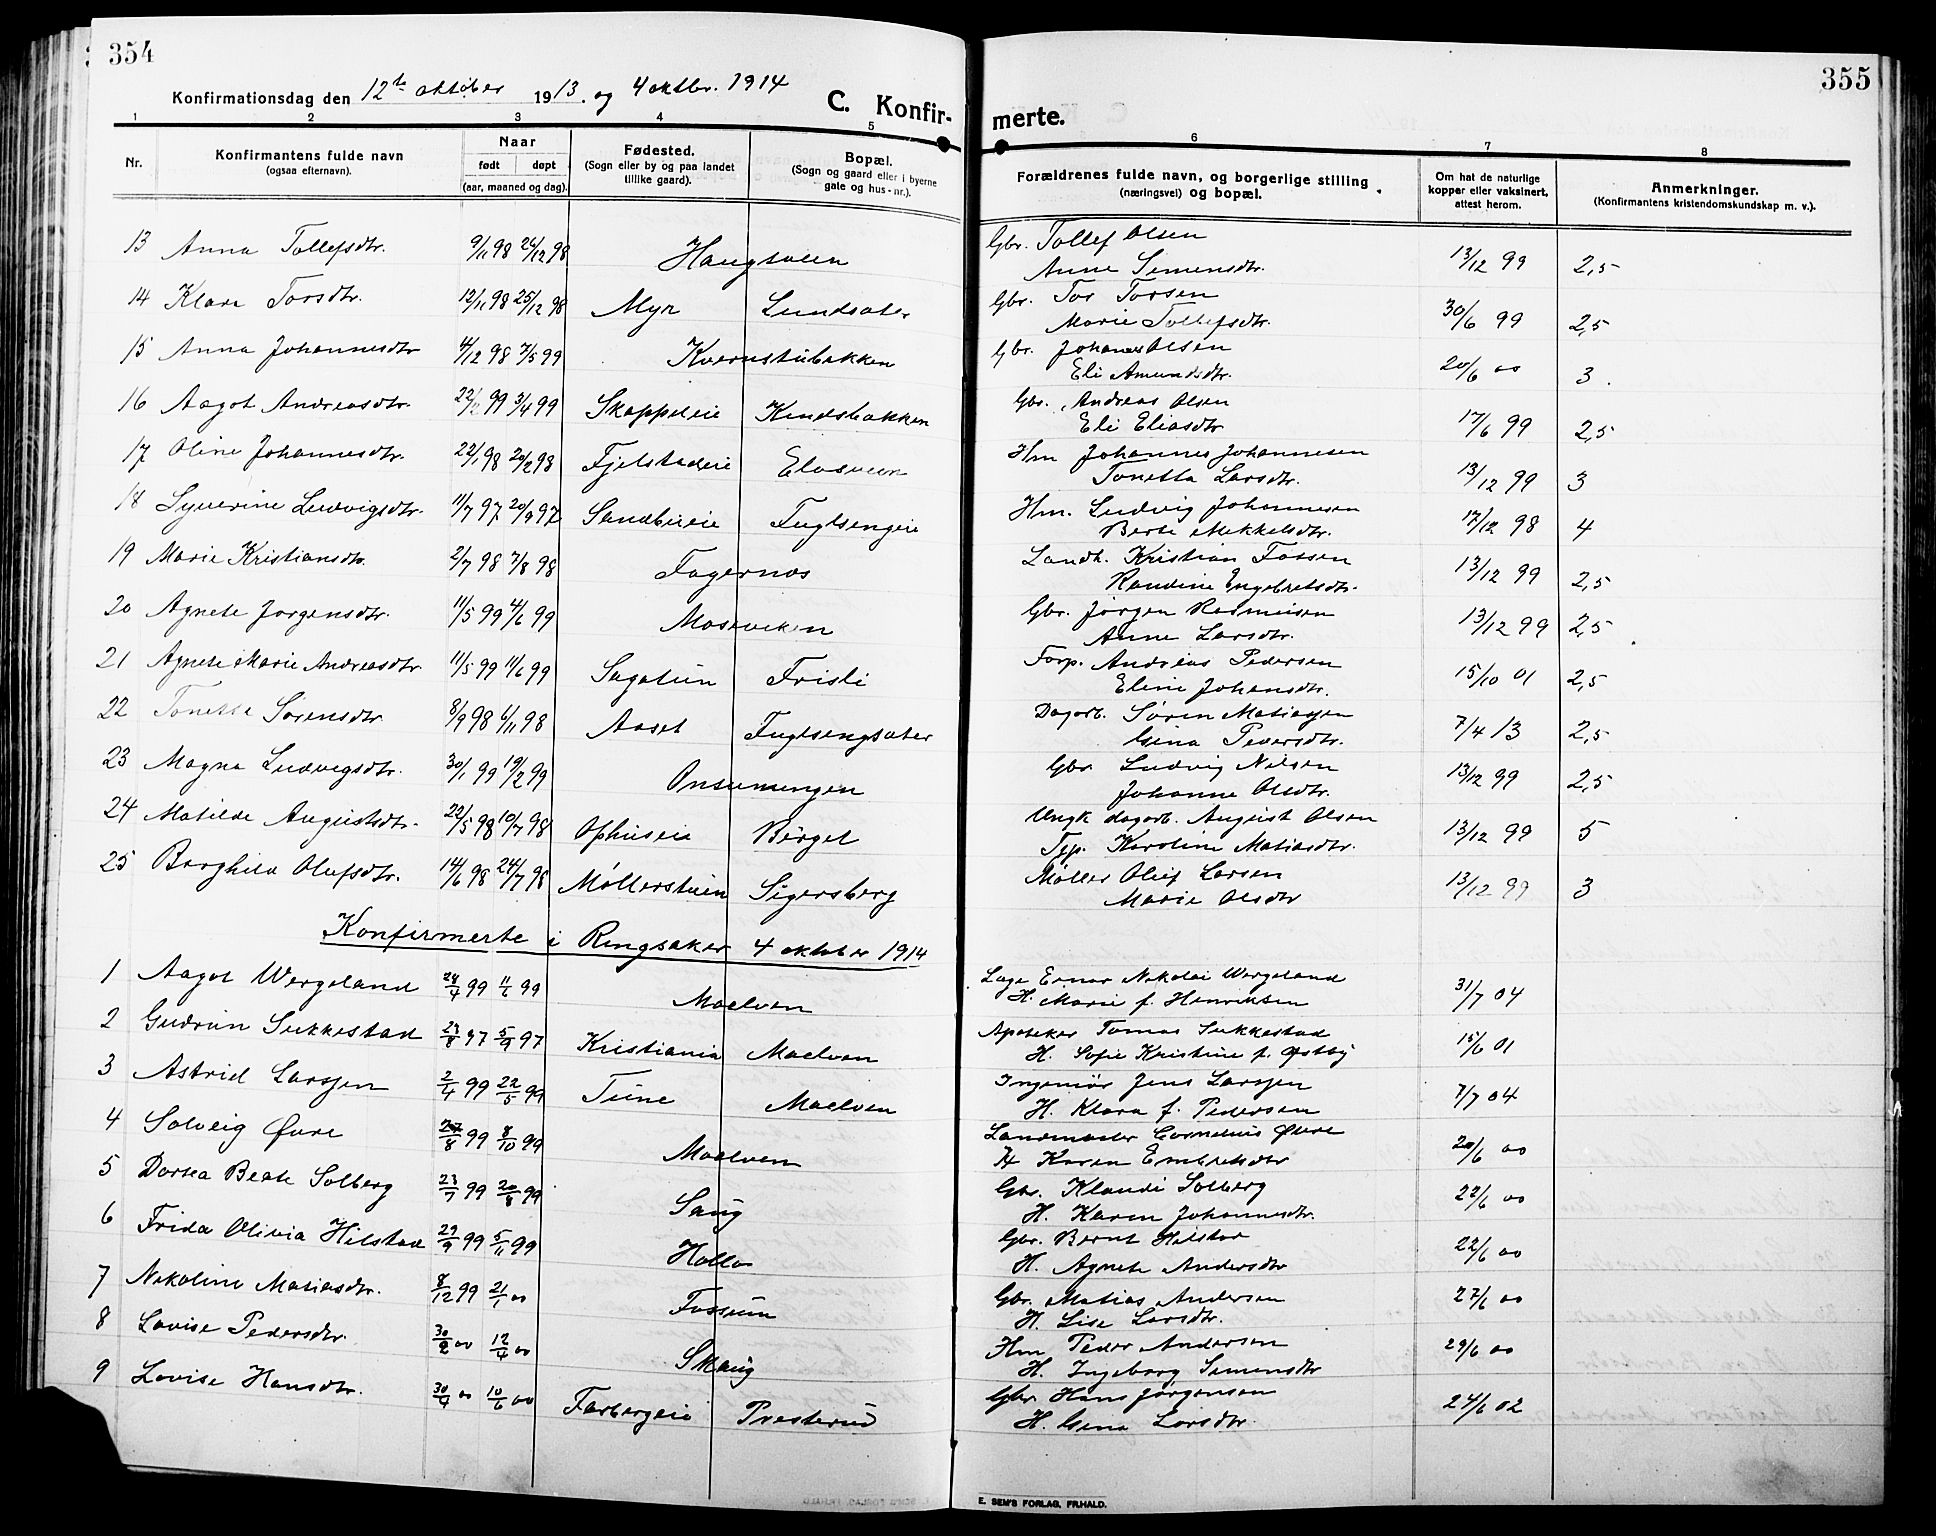 354
Konfirmationsdag den 12te oktober 1913. og 4 oktbr. 1914
C. Konfir-
1 2 3 4 5
Nr. Konfirmantens fulde navn (ogsaa efternavn). Naar født døpt (aar, maaned og dag). Fødested. (Sogn eller by og paa landet tillike gaard). Bopæl. (Sogn og gaard eller i byerne gate og hus-nr.).
13 Anna Tollefsdtr. 9/11 98 26/12 98 Haugsveen
14 Klara Torsdtr. 12/11 98 25/12 98 Myr Lundsæter
15 Anna Johannesdtr 4/12 98 7/5 99 Kvernstubakken
16 Aagot Andreasdtr. 22/1 99 3/4 99 Skappeleie Kindsbakken
17 Oline Johannesdtr. 22/1 98 20/2 98 Fjelstadeie
18 Syverine Ludvigsdtr. 11/7 97 20/9 97 Sandbueie Fuglsengeie
19 Marie Kristiansdtr. 2/7 98 7/8 98 Fagernæs
20 Agnete Jørgensdtr. 11/5 99 4/6 99
21 Agnete Marie Andreasdtr 11/5 99 11/6 99 Sagatun Frisli
22 Tonette Sørensdtr 8/9 98 6/11 98 Aaset Fuglsengsæter
23 Magna Ludvigsdtr. 30/1 99 19/2 99 Onsumengen
24 Matilde Augustsdtr. 22/5 98 10/7 98 Ophuseie Børgel
25 Borghild Olufsdtr. 14/6 98 24/7 98 Møllerstuen Sigersberg
Konfirmerte i Ringsaker 4 oktober 1914
1 Aagot Wergeland 24/4 99 11/6 99 Moelven
2 Gudrun Sukkestad 27/8 97 5/9 97 Kristiania Moelven
3 Astrid Larssen 2/4 99 22/5 99 Tune Moelven
4 Solveig Øvre 27/8 99 8/10 99 Moelven
5 Dortea Beate Solberg 23/7 99 20/8 99 Saug
6 Frida Olivia Hilstad 27/9 99 5/11 99 Holla
7 Nikoline Matiasdtr. 8/12 99 21/1 00 Fossum
8 Lovise Pedersdtr. 30/2 00 12/4 00 Skaug
9 Lovise Hansdtr. 30/4 00 10/6 00 Farbergeie Presterud
355
merte.
6 7 8
Forældrenes fulde navn, og borgerlige stilling (næringsvei) og bopæl. Om hat de naturlige kopper eller vaksinert, attest herom. Anmerkninger. (Konfirmantens kristendomskundskap m. v.).
Gbr. Tollef Olsen
Anne Simensdtr. 13/12 99 2,5
Gbr. Tor Torsen
Marie Tollefsdtr. 30/6 99 2,5
Gbr. Johanes Olsen
Eli Amundsdtr. 20/6 00 3.
Gbr. Andreas Olsen
Eli Eliasdtr 17/6 99 2,5
Hm Johannes Johannesen
Tonetta Larsdtr. 13/12 99 3
Hm. Ludvig Johannesen
Berte Mikkelsdtr. 17/12 98 4
Landh. Kristian Fossen
Randine Engebretsdtr. 13/12 99 2,5
Gbr. Jørgen Rasmusen
Anne Larsdtr. 13/12 99 2,5
Forp. Andreas Pedersen
Eline Johansdtr. 15/10 01 2,5
Dagarb. Søren Matiassen
Gina Pedersdtr. 7/4 13 2,5
Gbr. Ludvig Nilsen
Johanne Olsdtr. 13/12 99 2,5
Ungk dagarb. August Olsen
Tjp. Karoline Matiasdtr. 13/12 99 5
Møller Oluf Larsen
Marie Olsdtr 13/12 99 3
Læge Ernar Nikolai Wergeland
H. Marie f. Henriksen 31/7 04
Apoteker Tomas Sukkestad
H. Sofie Kristine f. Østby 15/6 01
Ingeniør Jens Larssen
H. Klara f. Pedersen 7/7 04
Landmaaler Cornelius Øvre
H Karen Embretsdtr 20/6 00
Gbr. Klaudi Solberg
H. Karen Johannesdtr. 22/6 00
Gbr. Bernt Hilstad
H. Agnete Andersdtr 22/6 00
Gbr. Matias Andersen
H. Lise Larsdtr. 27/6 00
Hm Peder Andersen
H. Ingeborg Simensdtr 29/6 00
Gbr Hans Jørgensen
H. Gina Larsdtr. 24/6 02
E. SEM'S FORLAG, FR.HALD.